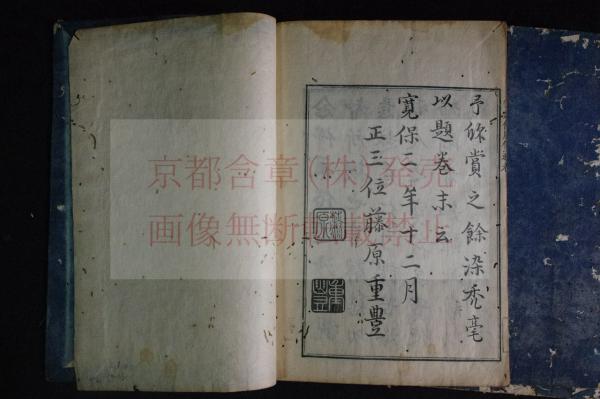 予称賞之餘染禿毫
以題卷末云
寛保二年十二月
正三位藤原重豊
藤原
重豊
京都含章(株)発売
画像無断転載禁止